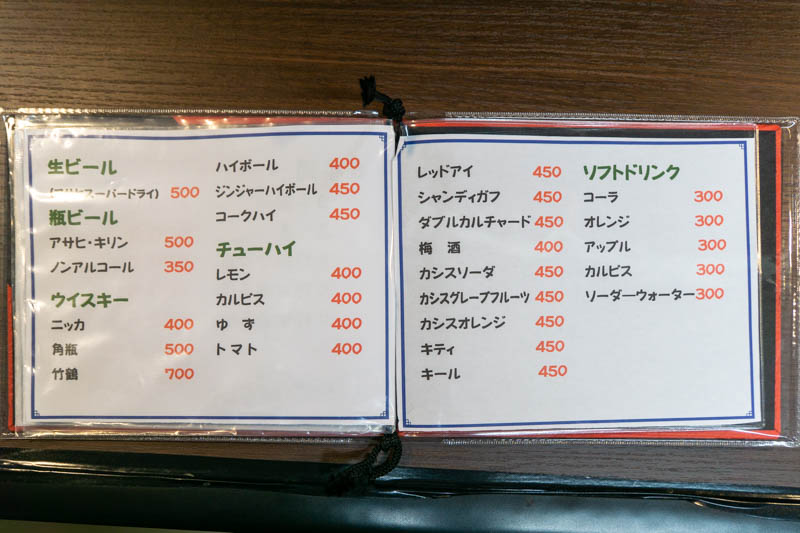 生ビール
(アサヒスーパードライ) 500
瓶ビール
アサヒ・キリン 500
ノンアルコール 350
ウイスキー
ニッカ 400
角瓶 500
竹鶴 700
ハイボール 400
ジンジャーハイボール 450
コークハイ 450
チューハイ
レモン 400
カルピス 400
ゆず 400
トマト 400
レッドアイ 450
シャンディガフ 450
ダブルカルチャード 450
梅酒 400
カシスソーダ 450
カシスグレープフルーツ 450
カシスオレンジ 450
キティ 450
キール 450
ソフトドリンク
コーラ 300
オレンジ 300
アップル 300
カルピス 300
ソーダーウォーター 300